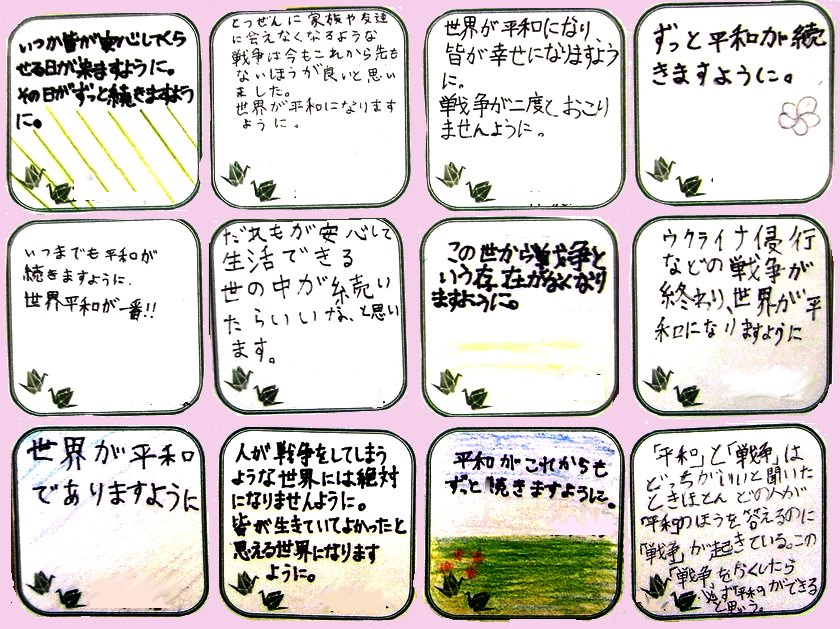 いつか皆が安心してくら
せる日が来ますように。
その日がずっと続きますよう
に。
とつぜんに家族や友達
に会えなくなるような
戦争は今もこれから先も
ないほうが良いと思い
ました。
世界が平和になります
ように。
世界が平和になり、
皆が幸せになりますよう
に。
戦争が二度とおこり
ませんように。
ずっと平和が続
きますように。
いつまでも平和が
続きますように.
世界平和が一番!!
だれもが安心して
生活できる
世の中が続い
たらいいな、と思い
ます。
この世から戦争と
いう存在がなくなり
ますように。
ウクライナ侵行
などの戦争が
終わり、世界が平
和になりますように
世界が平和
でありますように
人が戦争をしてしまう
ような世界には絶対
になりませんように。
皆が生きていてよかったと
思える世界になります
ように。
平和がこれからも
ずっと続きますように。
「平和」と「戦争」は
どっちがいいと聞いた
ときほとんどの人が
「平和」のほうを答えるのに
「戦争」が起きている。この
「戦争」をなくしたら
必ず「平和」ができる
と思う。